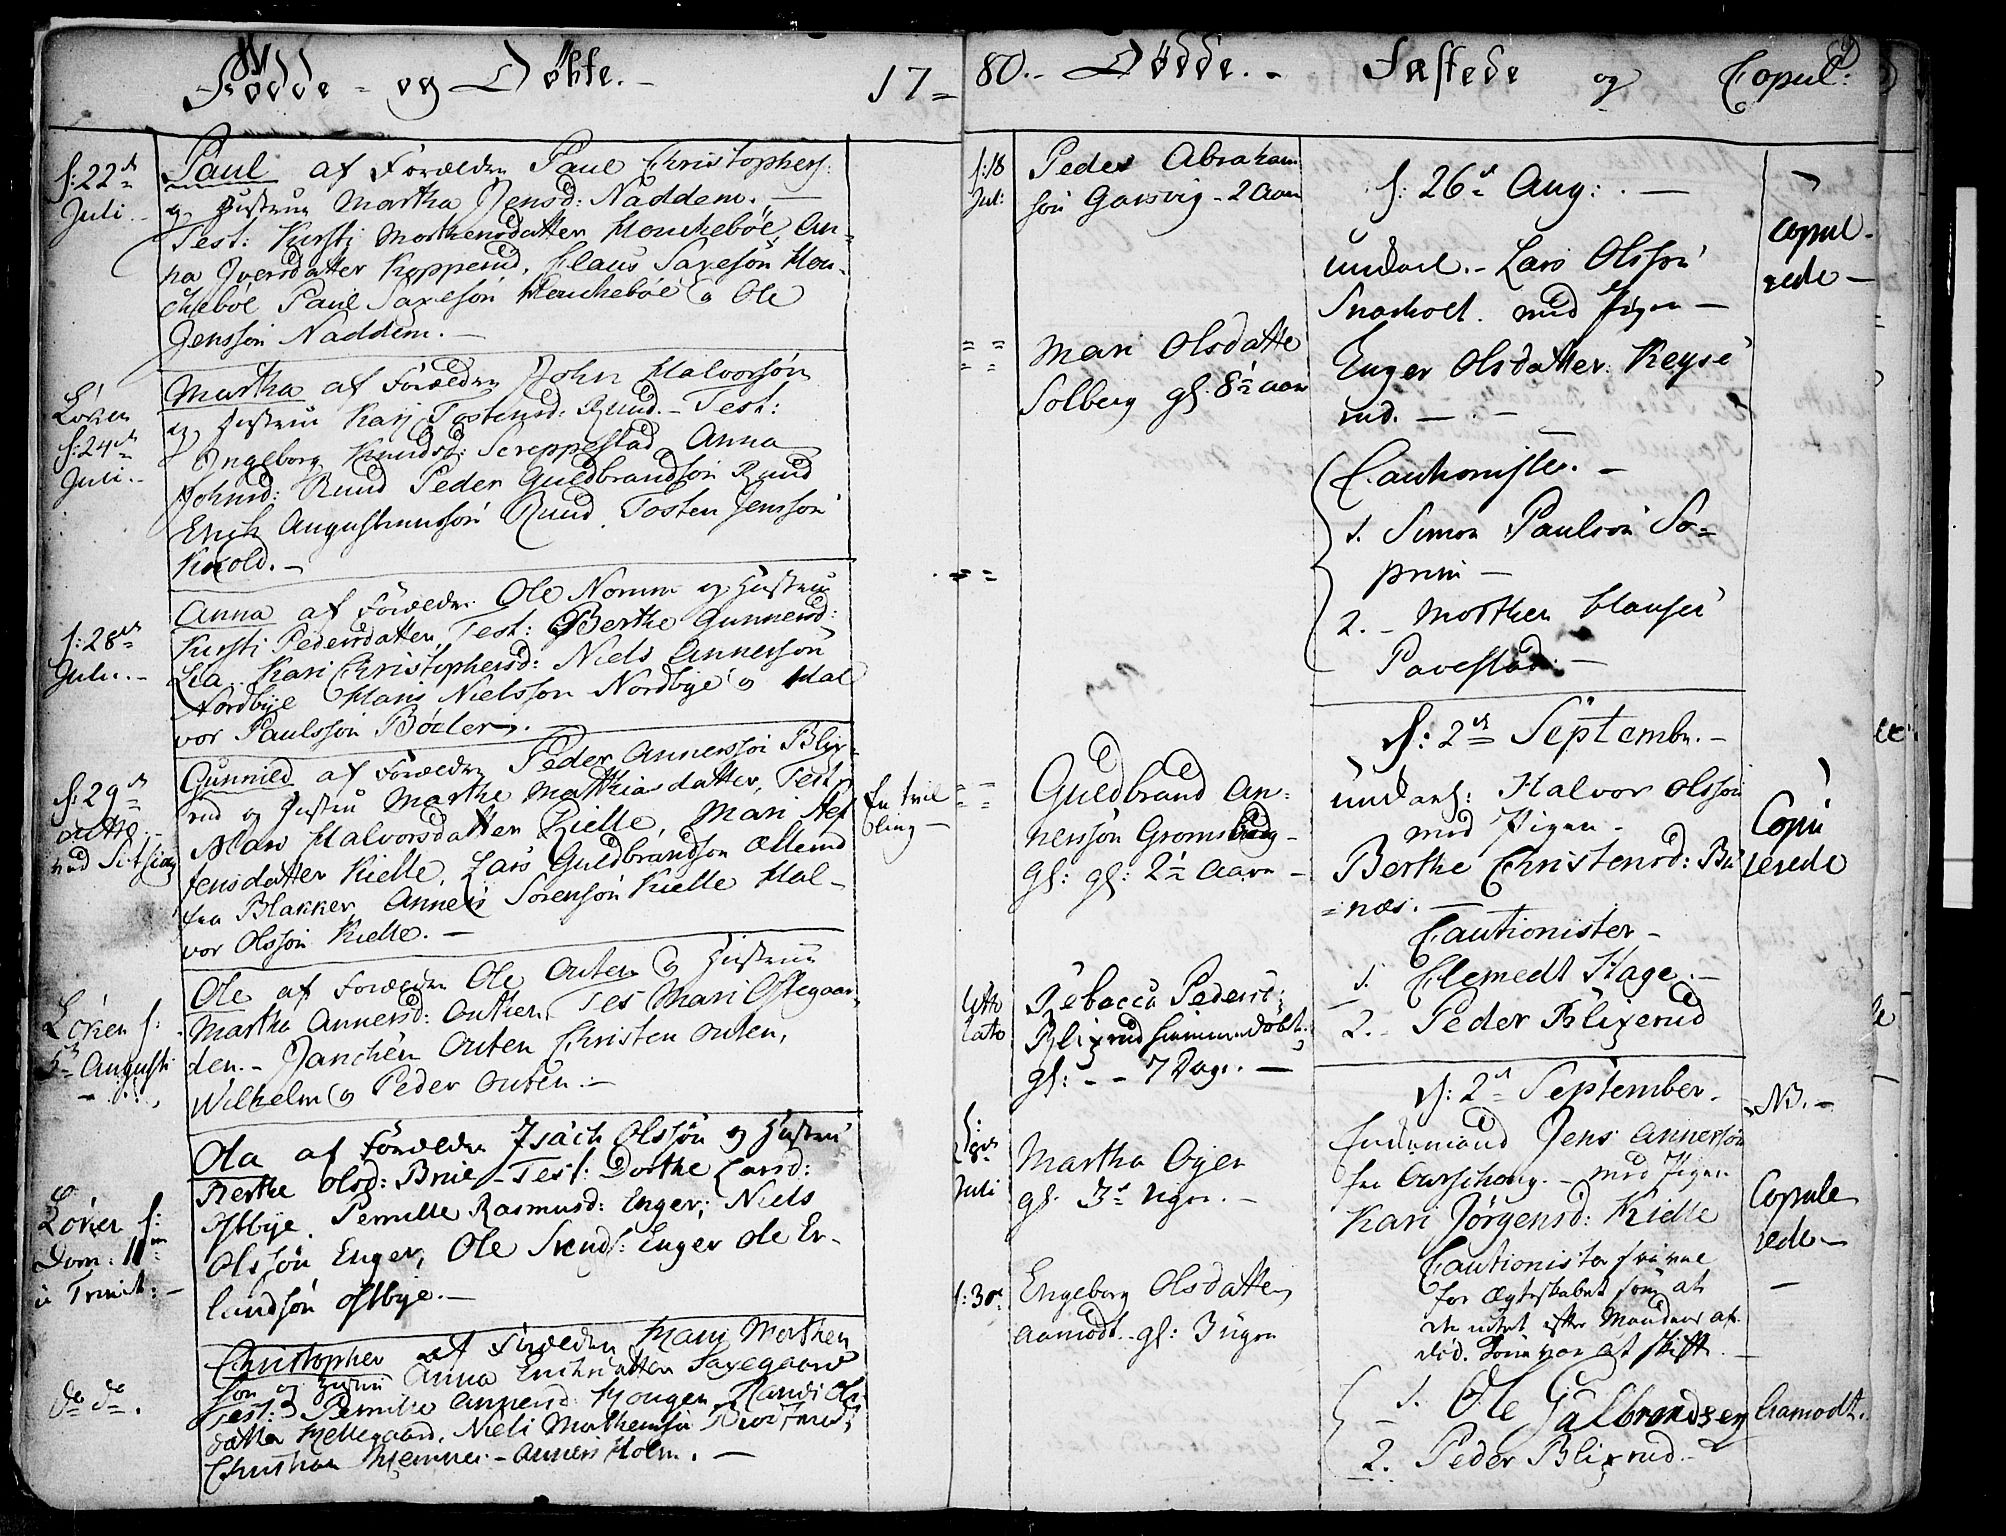 Fødde - og Døbte. -
17 =
d: 22de
Juli. -
Paul af Forældre Paul Christophers:
og Hustrue Martha Jensd: Naddem. -
Test: Kirsti Morthensdatter Houchebøe, An-
na Iversdatter Kopperud, Claus Saxesøn Hou-
chebøe Paul Saxesøn Houchebøe og Ole
Jenssøn Naddem. -
Løver
d: 24de
Juli. -
Martha af Forældre John Halvorsøn
og Hustrue Kari Tostensd: Ruud. - Test:
Ingeborg Knudsd: Screppestad Anna
Johnsd: Ruud Peder Guldbrandsøn Ruud
Erich Augustinussøn Ruud. Tosten Jenssøn
Krold. -
d: 28de
Juli. -
Anna af Forældre Ole Nomme og Hustrue
Kirsti Pedersdatter, Test: Berthe Gunnersd:
Lia. Kari Christophersd: Niels Annerssøn
Nordbye Hans Nielssøn Nordbye og Hal
vor Paulssøn Bøcler. -
d: 29de
Gunnild af Forældre Peder Annerssøn Blix-
rud og Hustrue Marthe Matthiasdatter, Test:
Mari Halvorsdatter Kielle, Mari Stef
fensdatter Kielle, Lars Guldbrandsøn Ællerud
fra Blakker, Anners Sørensøn Kielle Hal-
vor Olssøn Kielle. -
En tvil
ling -
Løver d:
5te Augusti
Ole af Forældre Ole Outen og Hustrue
Martha Annersd: Outhen, Tes Mari Ostegaar-
den. - Janchen Outen Christen Outen,
Wilhelm og Peder Outen. -
Løver d:
Dom: 11m
a Trinit: -
Ola af Forældre Isach Olssøn og Hustrue
Berthe Olsd: Brue - Test: Dorthe Larsd:
Ostbye. Pernille Rasmusd: Enger; Niels
Olssøn Enger, Ole Svends: Enger Ole Er-
landsøn Ostbye. -
do do.
Christopher af Forældre Hans Morthen
søn og Hustrue Anna Erichsdatter Saxegaard
Test: Pernille Annersd: Hougen, Randi Ols
datter Hellegaard, Niels Mathensøn
Christian - Anners Holm. -
80. - Døde. -
d: 18
Jul:
Peder Abraham
søn Garsvig - 2 Aar
= =
Mari Olsdatte
Solberg gl: 8½ aar
= =
= =
Guldbrand An-
nerssøn Gromsberg -
gl: gl: 2½ Aar -
Utto
Lato
Rebecca Pedersd:
Blixrud hiemmedøbt.
gl: - - 7 Dage. -
d:
19de
Juli
Martha Ojer
gl. 3de Uger. -
d: 30te
Engeborg Olsdatter
Aamodt. - gl: 3 uger
Fæstede og Copul:
d: 26de Aug: . -
Lars Olssøn
Snarholt. med Pigen -
Enger Olsdatter Keyse
rud. - -
Cautionister. -
1. Simon Paulsøn So=
prim -
2. - Morthen Clauser
Pavestad: -
Copul -
rede -
d: 2de Septembr. -
Halvor Olssøn
med Pigen -
Berthe Christensd: Bu
= næs. -
Cautionister -
1. Clemedt Hage. -
2. - Peder Blixerud
Copu
lerede
d: 2de September.
NB. -
Enkemand Jens Annerssøn
fra Aurschoug. - med Pigen
Kari Jørgensd: Kielle
Cautionister svarer
for Ægteskabet som at
intet efter Mandens af-
død. som var at skifte. -
Copule
rede -
1. Ole Gulbrandsen Aamodt.
2. Peder Blixrud. -